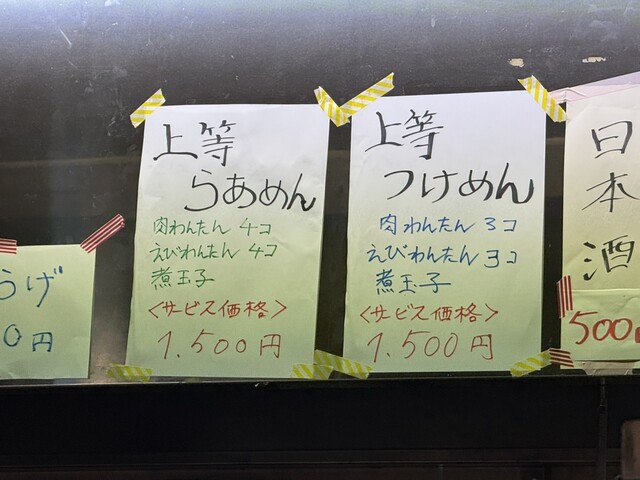 上等
らあめん
肉わんたん 4コ
えびわんたん 4コ
煮玉子
<サービス価格>
1.500円
上等
つけめん
肉わんたん 3コ
えびわんたん 3コ
煮玉子
<サービス価格>
1.500円
日本酒
500
らげ
0円